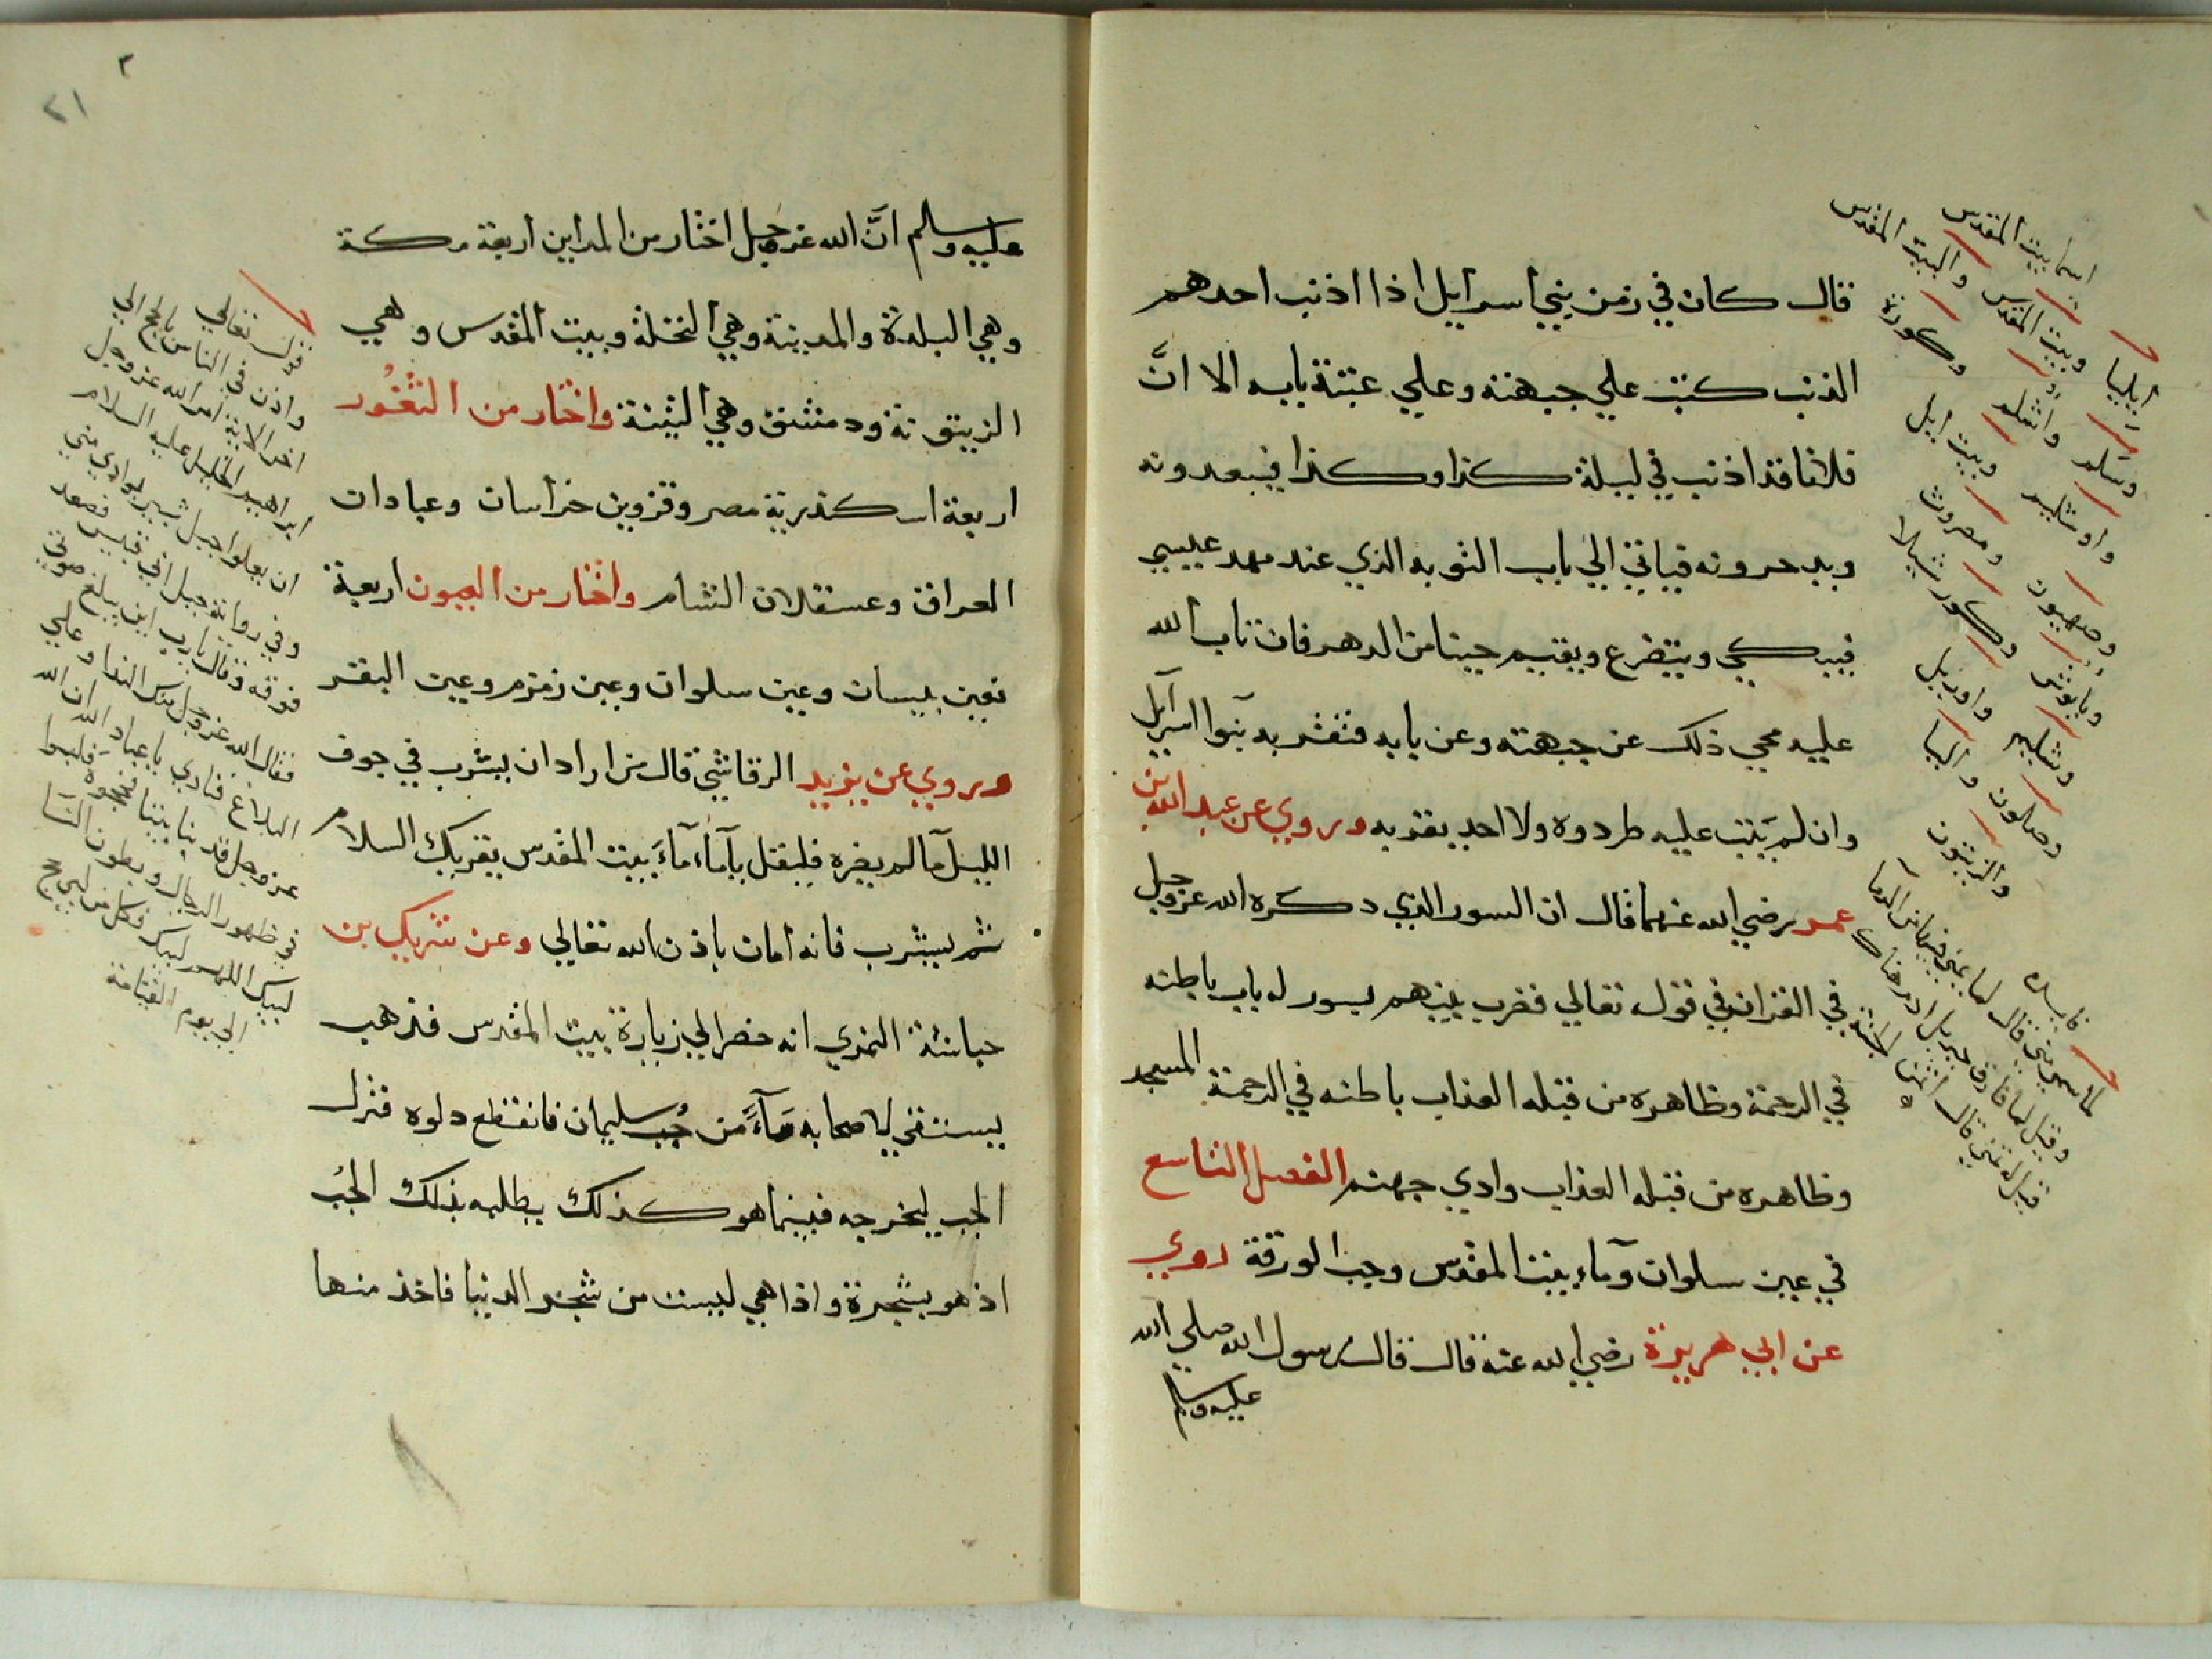 قال كان في زمن بني أسرايل اذا اذنب احدهم
الذنب كتب علي جبهته وعلي عتبة بابه الا انَّ
فلانا قد اذنب في ليلة كذا وكذا فيبعدونه
ويدحرونه فياتي الي باب التوبه الذي عند مهد عيسي
فيبكي ويتضرع ويقيم حينا من الدهر فان تاب الله
عليه محي ذلك عن جبهته وعن بابه فتقربه بنوا اسرآيل
وان لم يَتب عليه طردوه ولا احد يقربه وروي عن عبد الله بن
عمر رضي الله عنهما قال ان السور الذي دكره الله عز وجل
في القران في قوله تعالي فضرب بينهم بسور له باب باطنه
في الرحمة وظاهره من قبله العذاب باطنه في الرحمة المسجد
وظاهره من قبله العذاب وادي جهنم الفصل التاسع
في عين سلوان ومآء بيت المقدس وجب الورقة روي
عن ابي هريرة رضي الله عنه قال قال رسول الله صلي الله
عليه وسلم
اسما بيت المقدس
ايليا وبيت المقدس والبيت المقدس
وسلم واشلم وكورة
واوشليم وبيت ايل
وصهيون ومصروث
وبابوش وكور شيلا
وشليم واوريل
وصلون واليا
والزيتون
فايده
٣
٢١
عليه وسلم انَّ الله عز وجل اختار من المداين اربعة مكة
وهي البلدة والمدينة وهي النخلة وبيت المقدس وهي
الزيتونة ودمشق وهي التينة واختار من الثغُور
اربعة اسكندرية مصر وقزوين خراسان وعبادان
العراق وعسقلان الشام واختار من العيون اربعة
فعين بيسان وعين سلوان وعين زمزم وعين البقر
وروي عن يزيد الرقاشي قال من اراد ان يشرب في جوف
الليل مآ لم يضره فليقل يا مآء مآءُ بيت المقدس يقريك السلام
ثم يشرب فانه امان باذن الله تعالي وعن شريك بن
حباشة النمري انه حضر الي زيارة بيت المقدس فذهب
يستقي لاصحابه مَآءً من جُب سليمان فانقطع دلوه فنزل
الجب ليخرجه فبينما هو كذلك يطلبه بذلك الجُب
اذ هو بشجرة واذا هي ليست من شجر الدنيا فاخذ منها
قوله تعالي
واذن في الناس بالحج الي
اخر الاية امر الله عز وجل
ابراهيم الخليل عليه السلام
ان يعلوا جبل ثبير بوادي مني
وفي رواية جبل ابي قبيس فصعد
فوقه وقال يارب اين يبلغ صوتي
فقال الله عز وجل منك الندا وعلي
البلاغ فنادي يا عباد الله ان الله
عز وجل قد بنا بيتا فحجوه فلبوا
في ظهور الرجال وبطون النسا
لبيك اللهم لبيك فكل من لبي حج
الي يوم القيامة